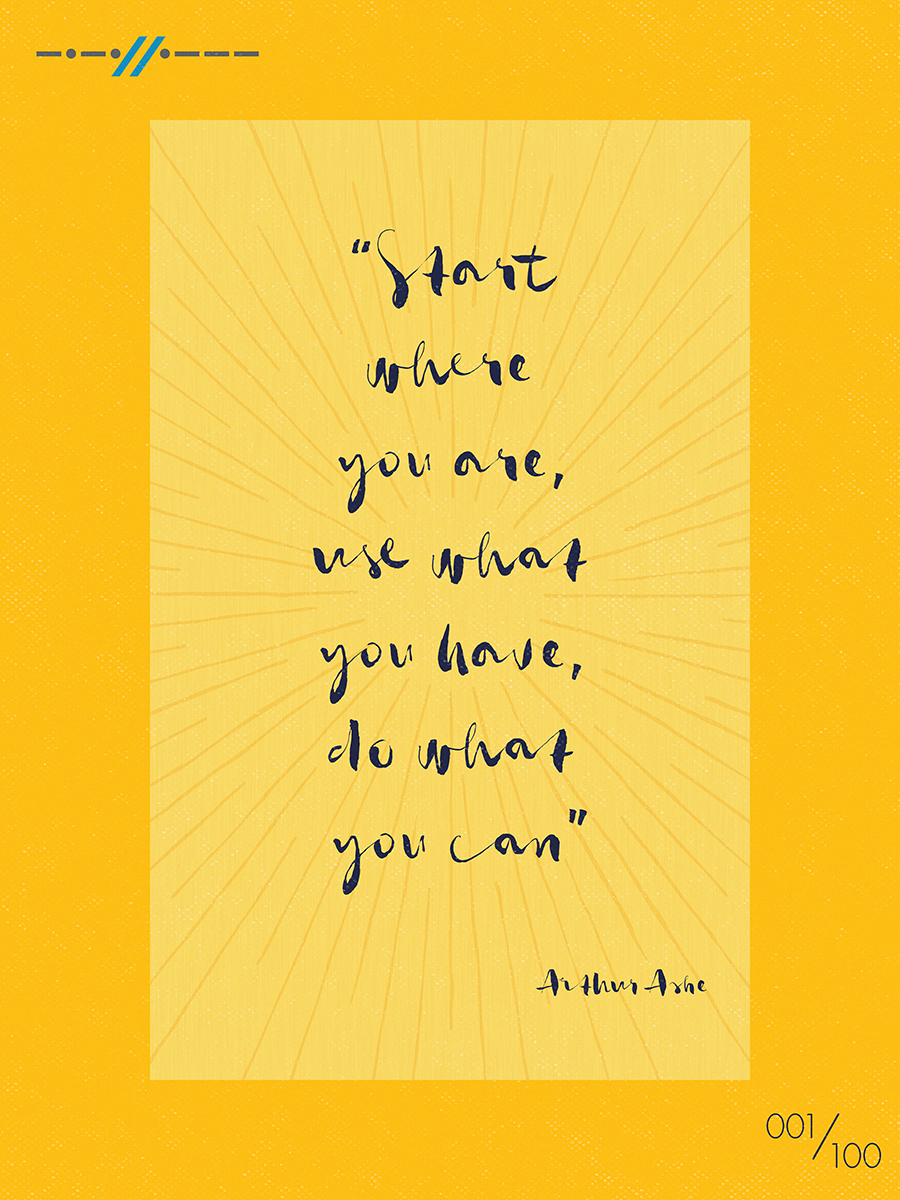 “Start
where
you are,
use what
you have,
do what
you can”
Arthur Ashe
001/100